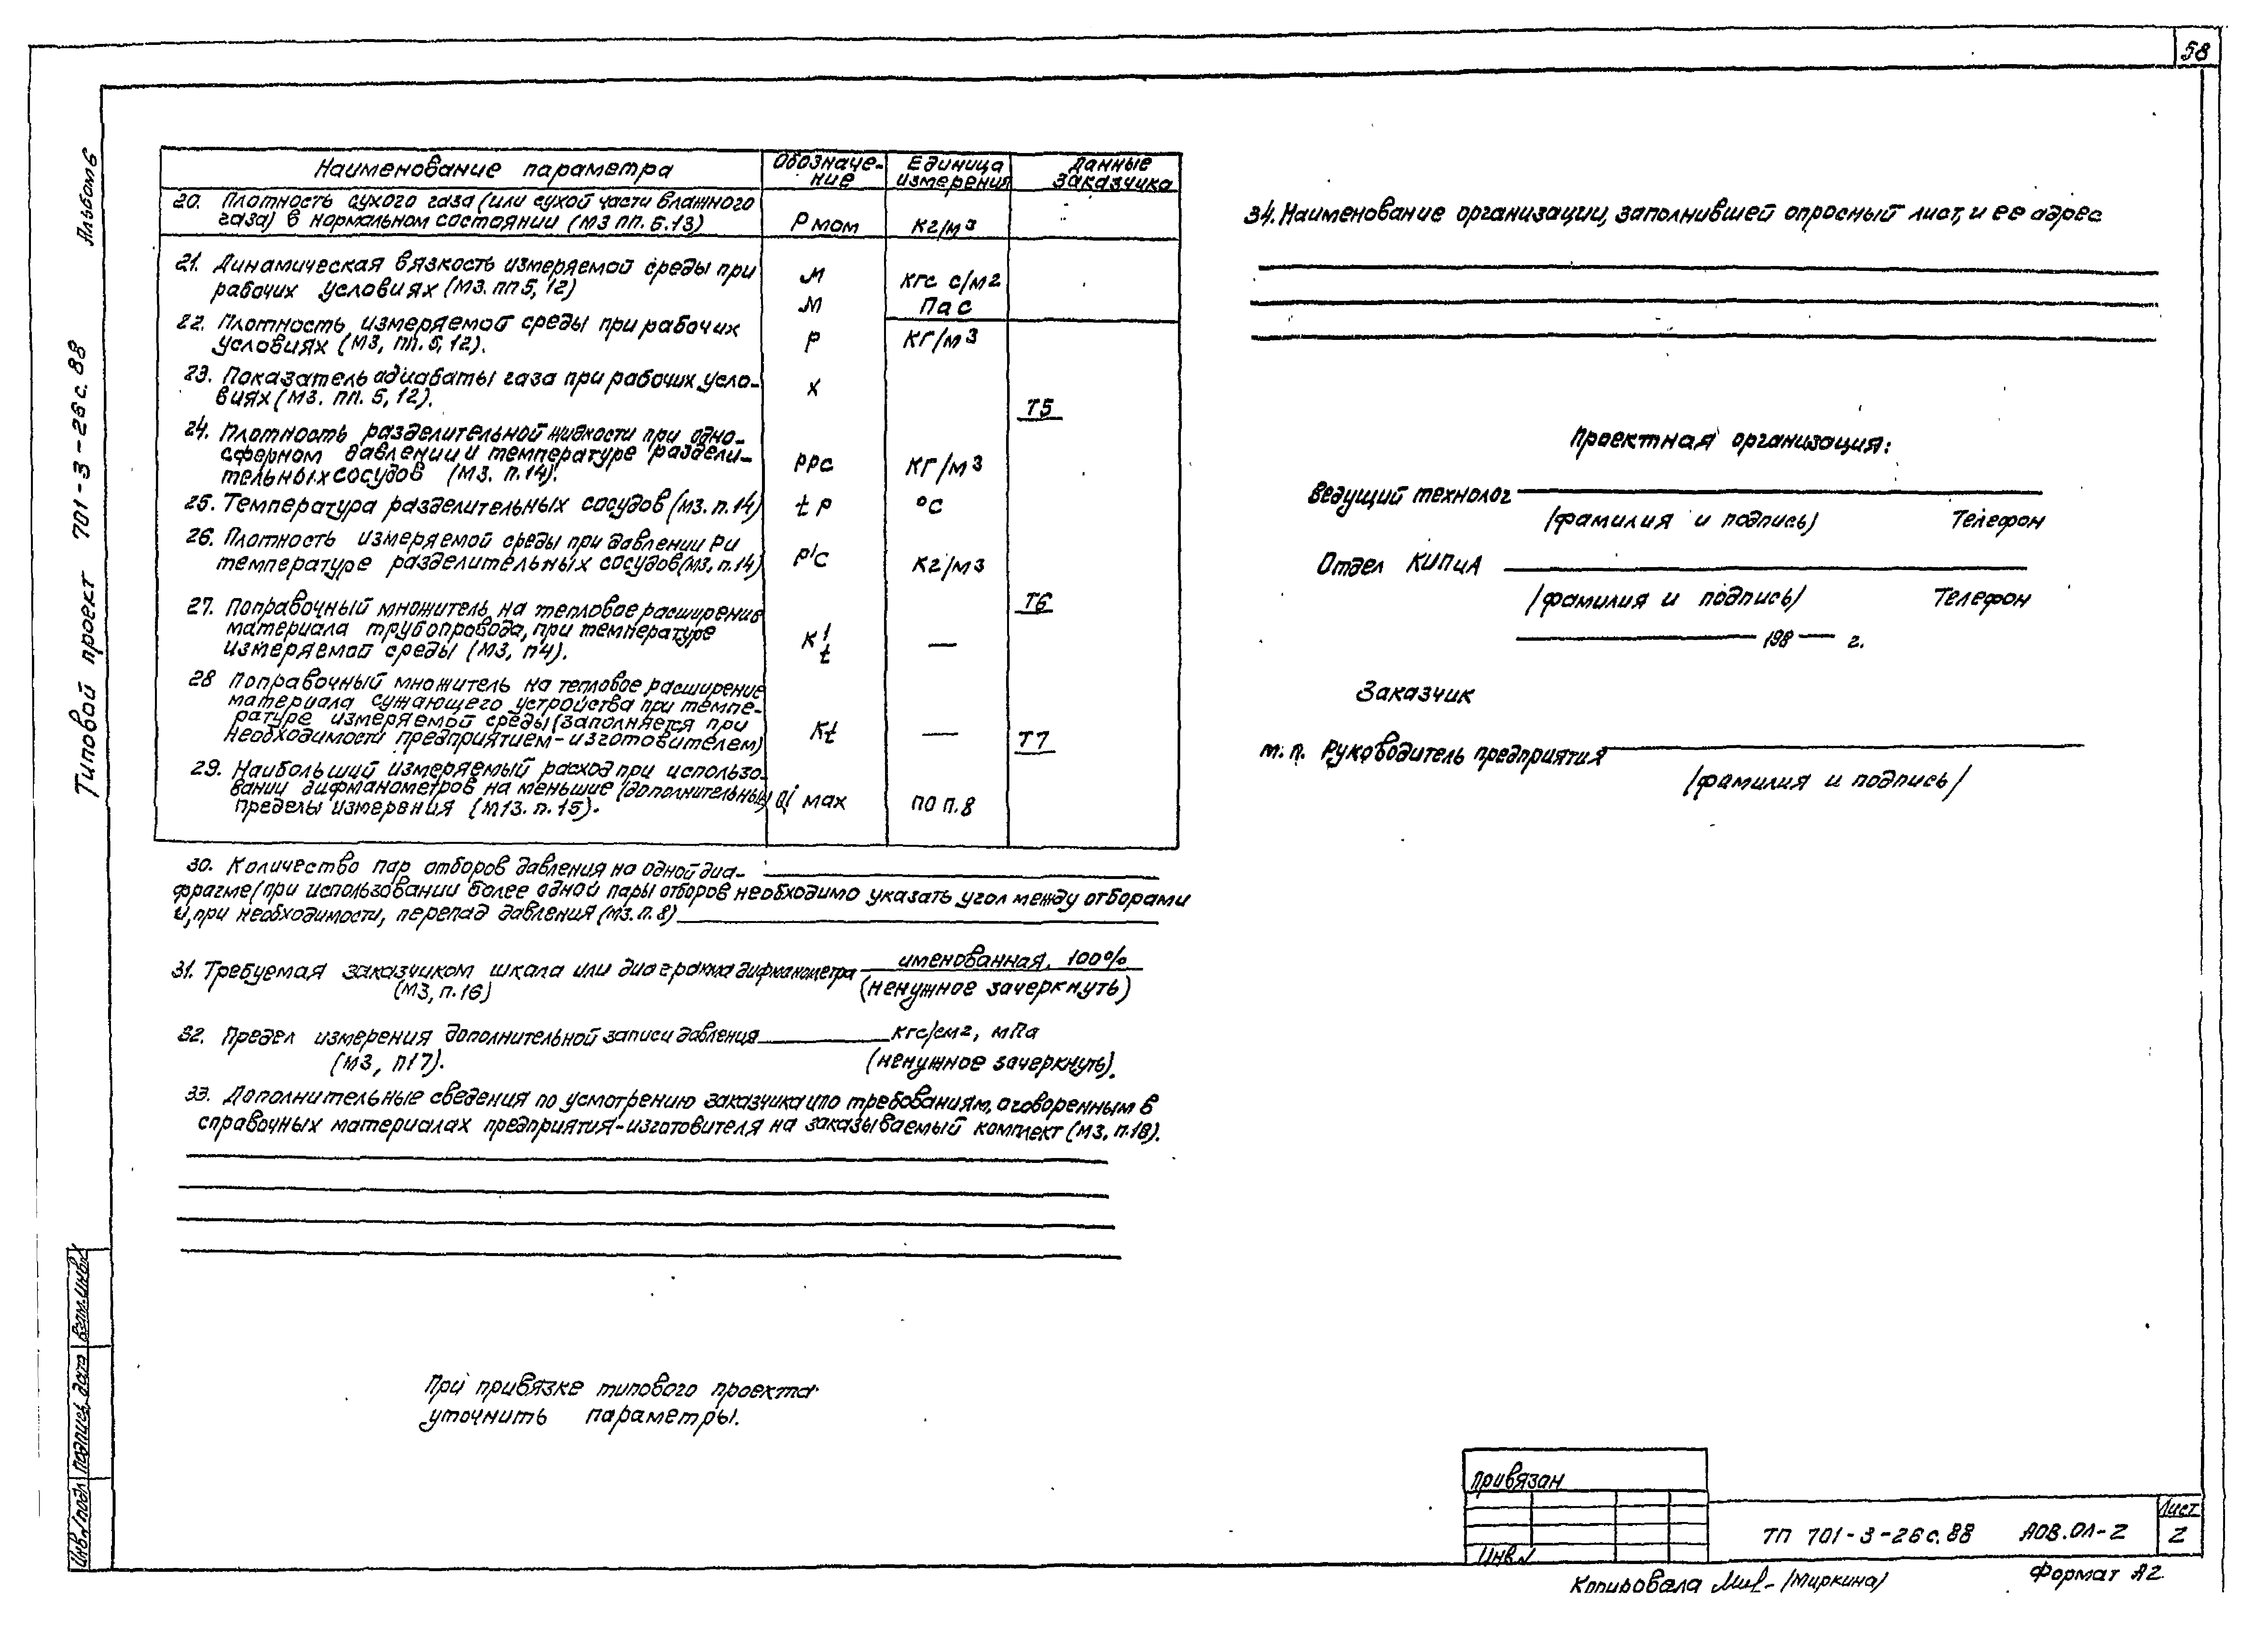 58
Альбом 6
Типовой проект 701-3-26с.88
Наименование параметра
Обозначе-
ние
Единица
измерения
Данные
заказчика
20. Плотность сухого газа (или сухой части влажного
газа) в нормальном состоянии (М3 пп. 5.13)
Рмом
кг/м3
21. Динамическая вязкость измеряемой среды при
рабочих условиях (М3. пп 5, 12)
М
кгс с/м2
М
Па с
22. Плотность измеряемой среды при рабочих
условиях (М3, пп. 5, 12).
Р
КГ/м3
23. Показатель адиабаты газа при рабочих усло-
виях (М3. пп. 5, 12).
Х
Т5
24. Плотность разделительной жидкости при одно-
сферном давлении и температуре раздели-
тельных сосудов (М3. п.14).
Ррс
КГ/м3
25. Температура разделительных сосудов (М3. п.14)
t р
°С
26. Плотность измеряемой среды при давлении Ри
температуре разделительных сосудов (М3, п.14)
Р'с
Кг/м3
27. Поправочный множитель на тепловое расширение
материала трубопровода, при температуре
измеряемой среды (М3, п4).
К't
—
Т6
28 Поправочный множитель на тепловое расширение
материала сужающего устройства при темпе-
ратуре измеряемой среды (заполняется при
необходимости предприятием-изготовителем)
Кt
—
Т7
29. Наибольший измеряемый расход при использо-
вании дифманометров на меньшие (дополнительные)
пределы измерения (М13. п. 15).
Qi max
по п.8
30. Количество пар отборов давления на одной диа-
фрагме (при использовании более одной пары отборов необходимо указать угол между отборами
и, при необходимости, перепад давления (М3. п. 8)
31. Требуемая заказчиком шкала или диаграмма дифманометра именованная, 100%
(М3, п.16) (ненужное зачеркнуть)
32. Предел измерения дополнительной записи давления кгс/см2, мПа
(М3, п17). (ненужное зачеркнуть).
33. Дополнительные сведения по усмотрению заказчика и по требованиям, оговоренным в
справочных материалах предприятия-изготовителя на заказываемый комплект (М3, п.18).
При привязке типового проекта
уточнить параметры.
34. Наименование организации, заполнившей опросный лист, и ее адрес
Проектная организация:
Ведущий технолог
/фамилия и подпись) Телефон
Отдел КИПиА
/фамилия и подпись) Телефон
198 г.
Заказчик
т. п. Руководитель предприятия
/фамилия и подпись/
Привязан
Инв.N
ТП 701-3-26с.88 АОВ.ОЛ-2
Лист
2
Копировала (Миркина)
Формат А2.
Инв.N подл Подпись, дата Взам.инв.N